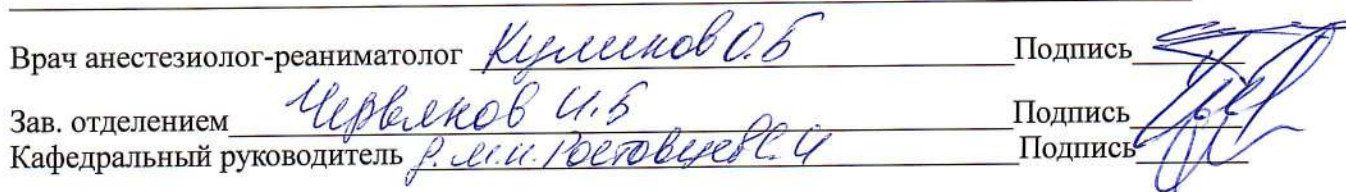 Врач анестезиолог-реаниматолог Куликов О.Б Подпись
Зав. отделением Червяков И.Б Подпись
Кафедральный руководитель д.м.н. Ростовцев С.И Подпись